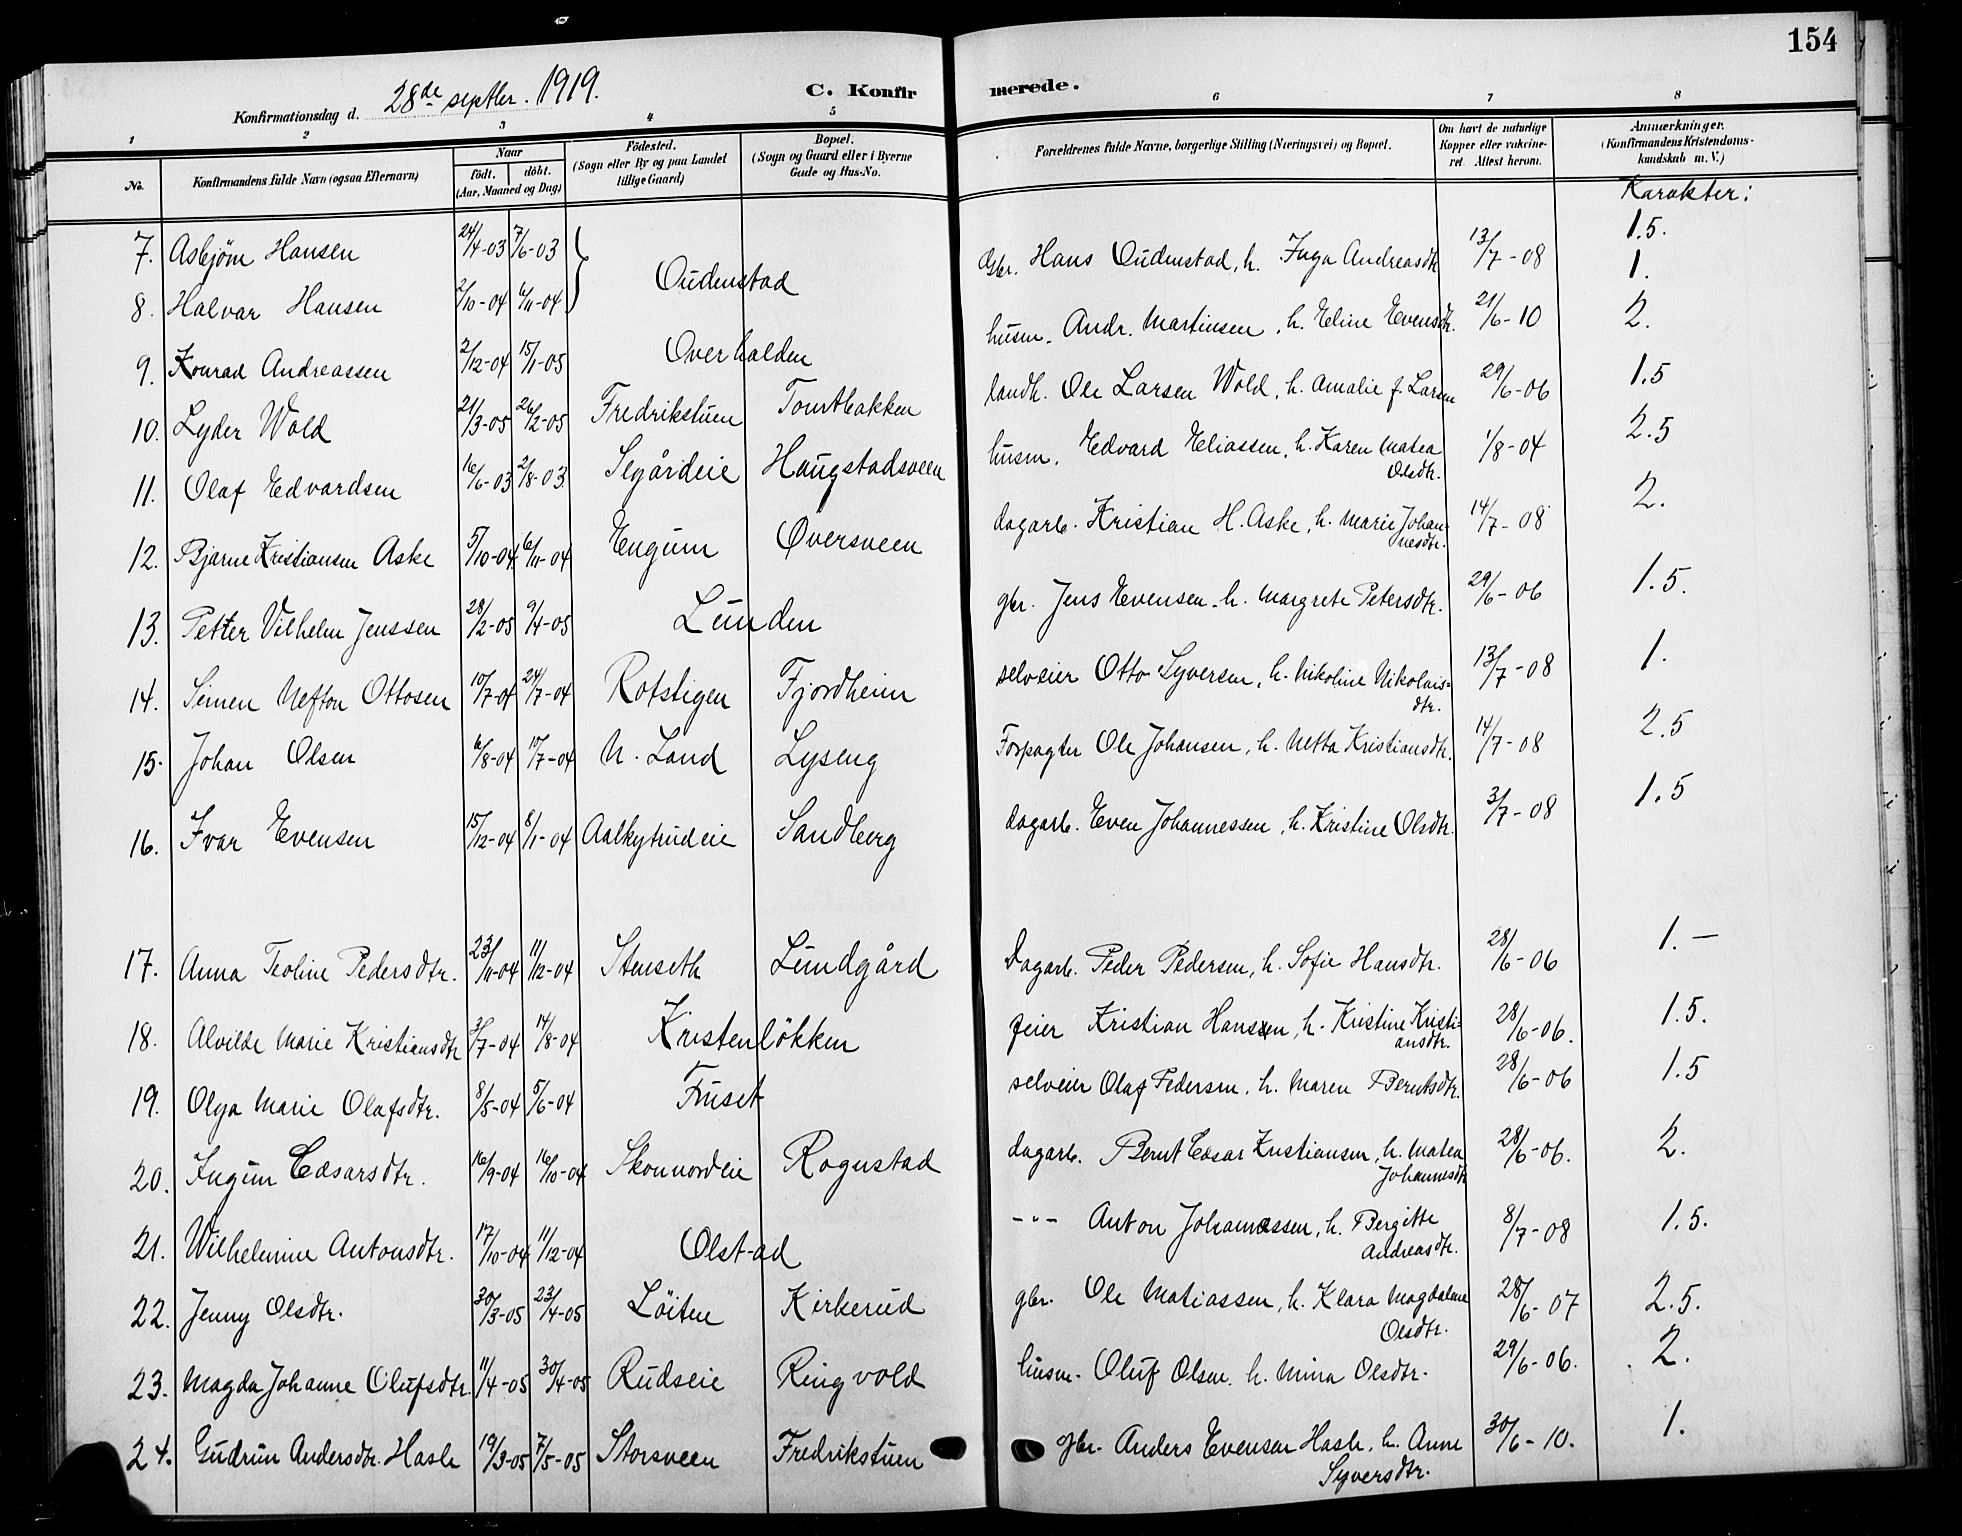 154
Konfirmationsdag d. 28de septbr. 1919.
C. Konfirmerede.
1 2 3 4 5 6 7 8
No. Konfirmandens fulde Navn (ogsaa Efternavn) Naar født. døbt. (Aar, Maaned og Dag) Fødested. (Sogn eller By og paa Landet tillige Gaard) Bopæl. (Sogn og Gaard eller i Byerne Gade og Hus-No. Forældrenes fulde Navne, borgerlige Stilling (Næringsvei) og Bopæl. Om havt de naturlige Kopper eller vakcineret. Attest herom. Anmærkninger. (Konfirmandens Kristendomskundskab m. V.)
Karakter:
7. Asbjørn Hansen 24/4-03 7/6-03 Oudenstad Gbr. Hans Oudenstad, h. Inga Andreasdtr 13/7-08 1.5.
8. Halvar Hansen 2/10-04 6/11-04 1.
9. Konrad Andreassen 2/12-04 15/1-05 Overhalden husm. Andr. Martinsen, h. Eline Evensdtr. 21/6-10 2.
10. Lyder Wold 21/3-05 26/2-05 Fredrikstuen Tomtbakken landh. Ole Larsen Wold, h. Amalie f. Larsen 29/6-06 1.5
11. Olaf Edvardsen 16/6-03 2/8-03 Segårdeie Haugstadsveen husm. Edvard Eliassen, h. Karen Matea Olsdtr. 1/8-04 2.5
12. Bjarne Kristiansen Aske 5/10-04 6/11-04 Engum Øversveen dagarb. Kristian H. Aske, h. Marie Johannesdtr. 14/7-08 2.
13. Petter Vilhelm Jenssen 28/2-05 9/4-05 Lunden gbr. Jens Evensen. h. Margrete Petersdtr. 29/6-06 1.5.
14. Simen Nefton Ottosen 10/7-04 24/7-04 Rotstigen Fjordheim selveier Otto Syversen, h. Nikoline Nikolaisdtr. 13/7-08 1.
15. Johan Olsen 6/8-04 10/7-04 N. Land Lyseng Forpagter Ole Johansen, h. Netta Kristiansdtr. 14/7-08 2.5
16. Ivar Evensen 15/12-04 8/1-04 Aalkytrudeie Sandberg dagarb. Even Johannessen, h. Kristine Olsdtr. 3/7-08 1.5
17. Anna Teoline Pedersdtr. 23/11-04 11/12-04 Stenseth Lundgård Dagarb. Peder Pedersen, h. Sofie Hansdtr. 28/6-06 1.-
18. Alvilde Marie Kristiansdtr 3/7-04 14/8-04 Kristenløkken feier Kristian Hansen, h. Kristine Kristiansdtr. 28/6-06. 1.5.
19. Olga Marie Olafsdtr. 8/5-04 5/6-04 Fuset selveier Olaf Pedersen, h. Maren Berntsdtr. 28/6-06 1.5
20. Ingun Cæsarsdtr. 16/9-04 16/10-04 Skonnordeie Rognstad dagarb. Bernt Cæsar Kristiansen, h. Matea Johannesdtr 28/6-06. 2.
21. Wilhelmine Antonsdtr. 17/10-04 11/12-04 Olstad -"- Anton Johannessen, h. Bergitte Andreasdtr. 8/7-08 1.5.
22. Jenny Olsdtr. 30/3-05 23/4-05 Løiten Kirkerud gbr. Ole Matiassen, h. Klara Magdalene Olsdtr. 28/6-07 2.5.
23. Magda Johanne Olufsdtr. 11/4-05 30/4-05 Rudseie Ringvold husm. Oluf Olsen. h. Mina Olsdtr. 29/6-06. 2.
24. Gudrun Andersdtr. Hasle 19/3-05 7/5-05 Storsveen Fredrikstuen gbr. Anders Evensen Hasle, h. Anne Syversdtr. 30/6-10. 1.